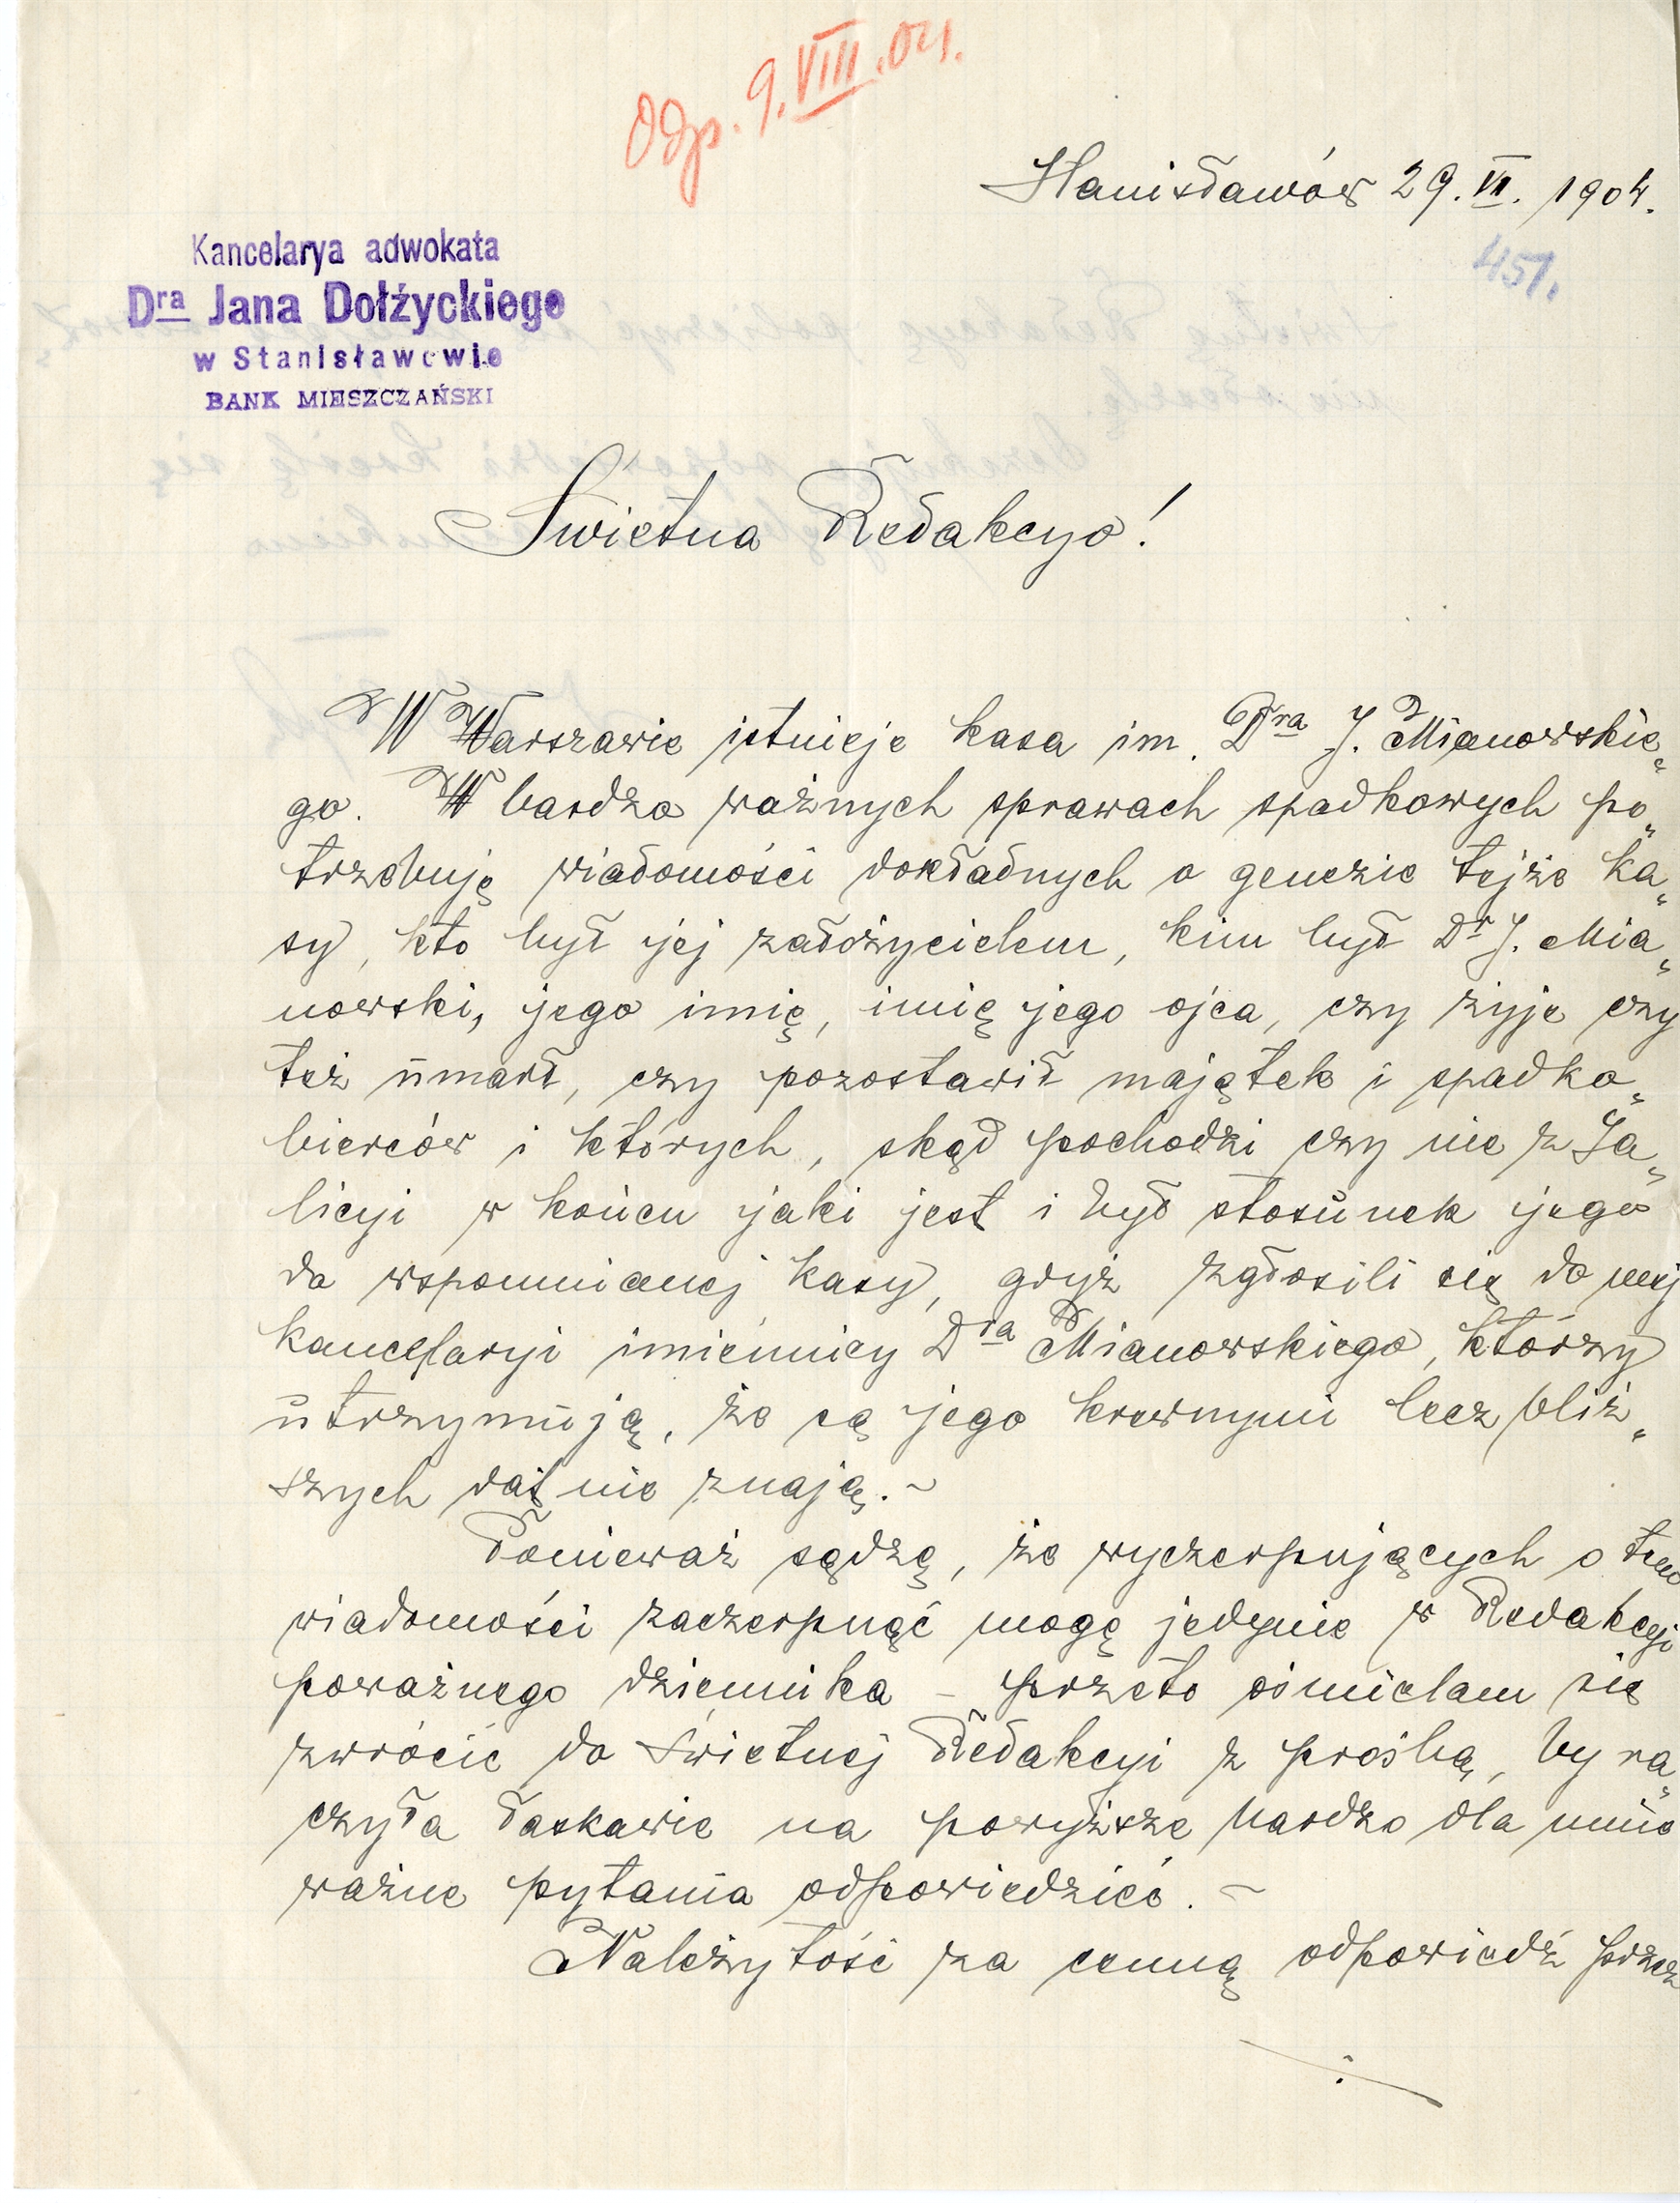 Odp. 9.VIII.04.
Stanisławów 29. VI. 1904.
451.
Kancelarya adwokata
Dra Jana Dołżyckiego
w Stanisławowie
BANK MIESZCZAŃSKI
Świetna Redakcyo!
W Warszawie istnieje kasa im. Dra J. Mianowskie„
go. W bardzo ważnych sprawach spadkowych po„
trzebuję wiadomości dokładnych o genezie tejże ka„
sy, kto był jej założycielem, kim był Dr J. Mia„
nowski, jego imię, imię jego ojca, czy żyje czy
też umarł, czy pozostawił majątek i spadko„
bierców i których, skąd pochodzi czy nie z Ga„
licyi w końcu jaki jest i był stosunek jego
do wspomnianej kasy, gdyż zgłosili się do mej
kancelaryi imiennicy Dra Mianowskiego, którzy
utrzymują, że są jego krewnymi lecz bliż„
szych dat nie znają. ~
Ponieważ sądzę, że wyczerpujących o tem
wiadomości zaczerpnąć mogę jedynie w Redakcyi
poważnego dziennika – przeto ośmielam się
zwrócić do Świetnej Redakcyi z prośbą, by ra„
czyła łaskawie na powyższe bardzo dla mnie
ważne pytania odpowiedzieć. ~
Należytość za cenną odpowiedź przez